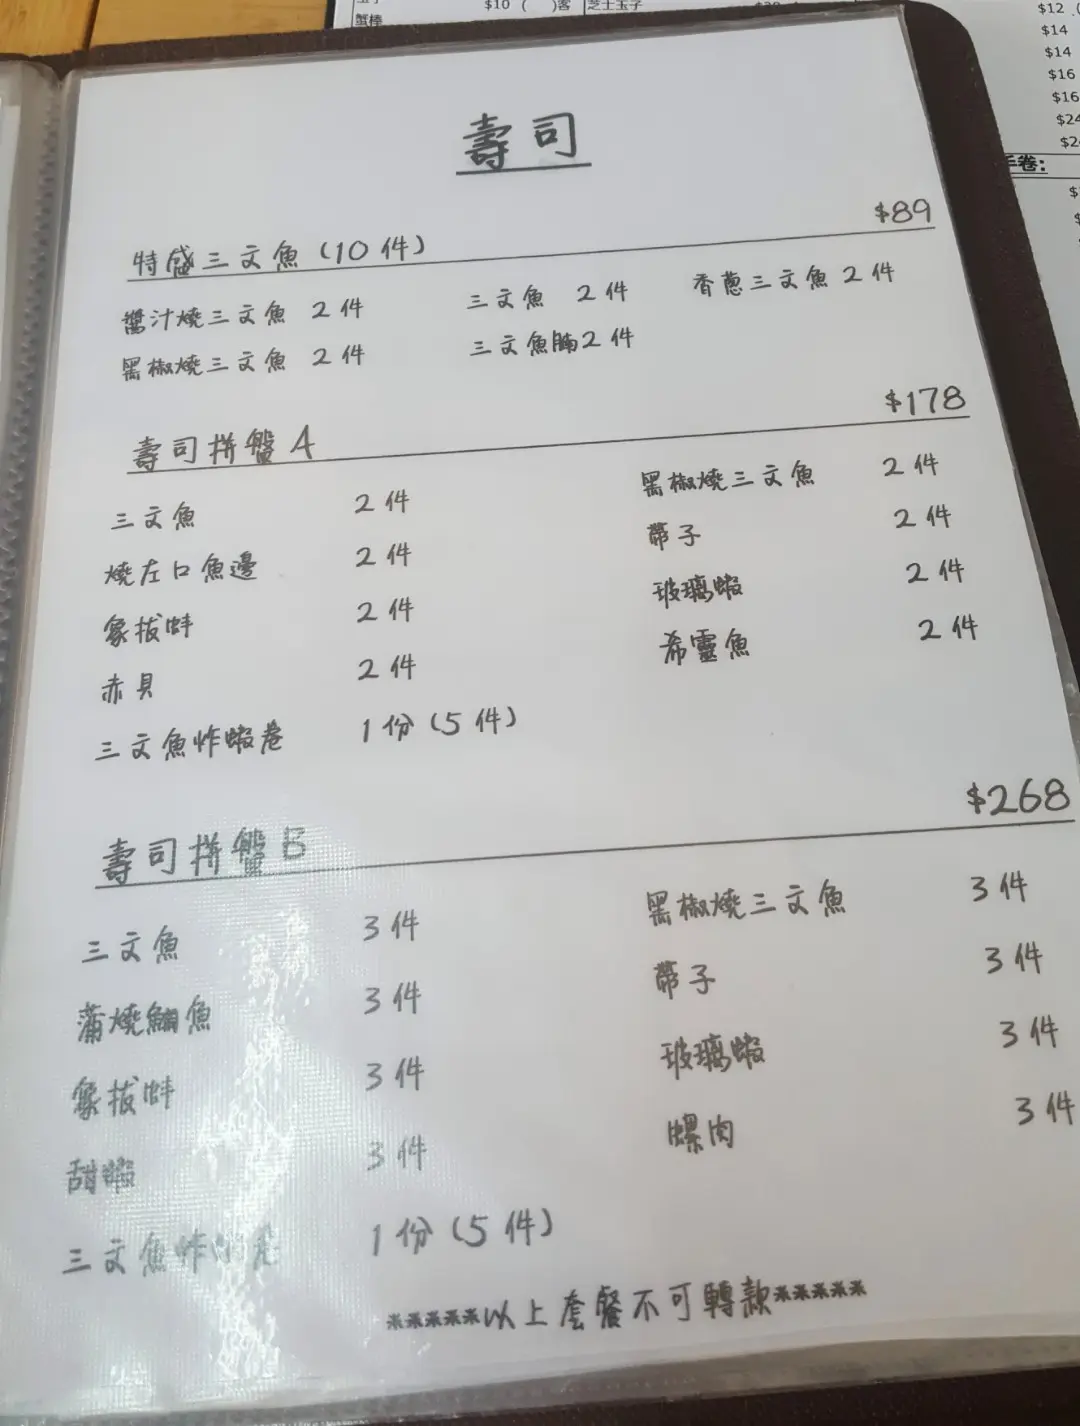 $10 ( )客 芝士玉子
蟹棒
$12
$14
$14
$16
$16
手卷:
壽司
特盛三文魚(10件) $89
醬汁燒三文魚 2件 三文魚 2件 香蔥三文魚 2件
黑椒燒三文魚 2件 三文魚腩2件
壽司拼盤A $178
三文魚 2件 黑椒燒三文魚 2件
燒左口魚邊 2件 帶子 2件
象拔蚌 2件 玻璃蝦 2件
赤貝 2件 希靈魚 2件
三文魚炸蝦卷 1份(5件)
壽司拼盤B $268
三文魚 3件 黑椒燒三文魚 3件
蒲燒鯛魚 3件 帶子 3件
象拔蚌 3件 玻璃蝦 3件
甜蝦 3件 螺肉 3件
三文魚炸蝦卷 1份(5件)
*****以上套餐不可轉款*****